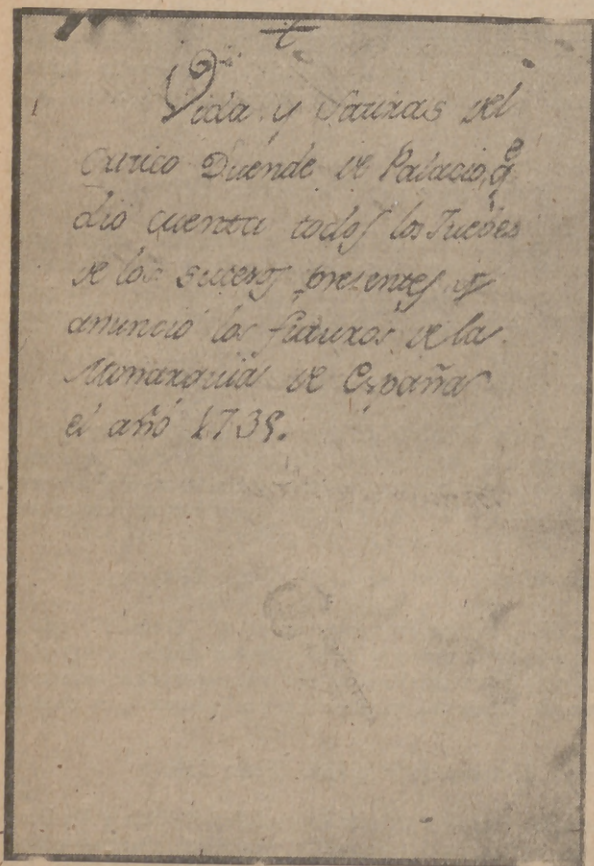 Vida y Sauxas del
Critico Duende de Palacio, q^e
dio cuenta todos los Jueves
de los sucesos presentes y
anunció los fiduxos de la
Monarquia de España
el año 1735.